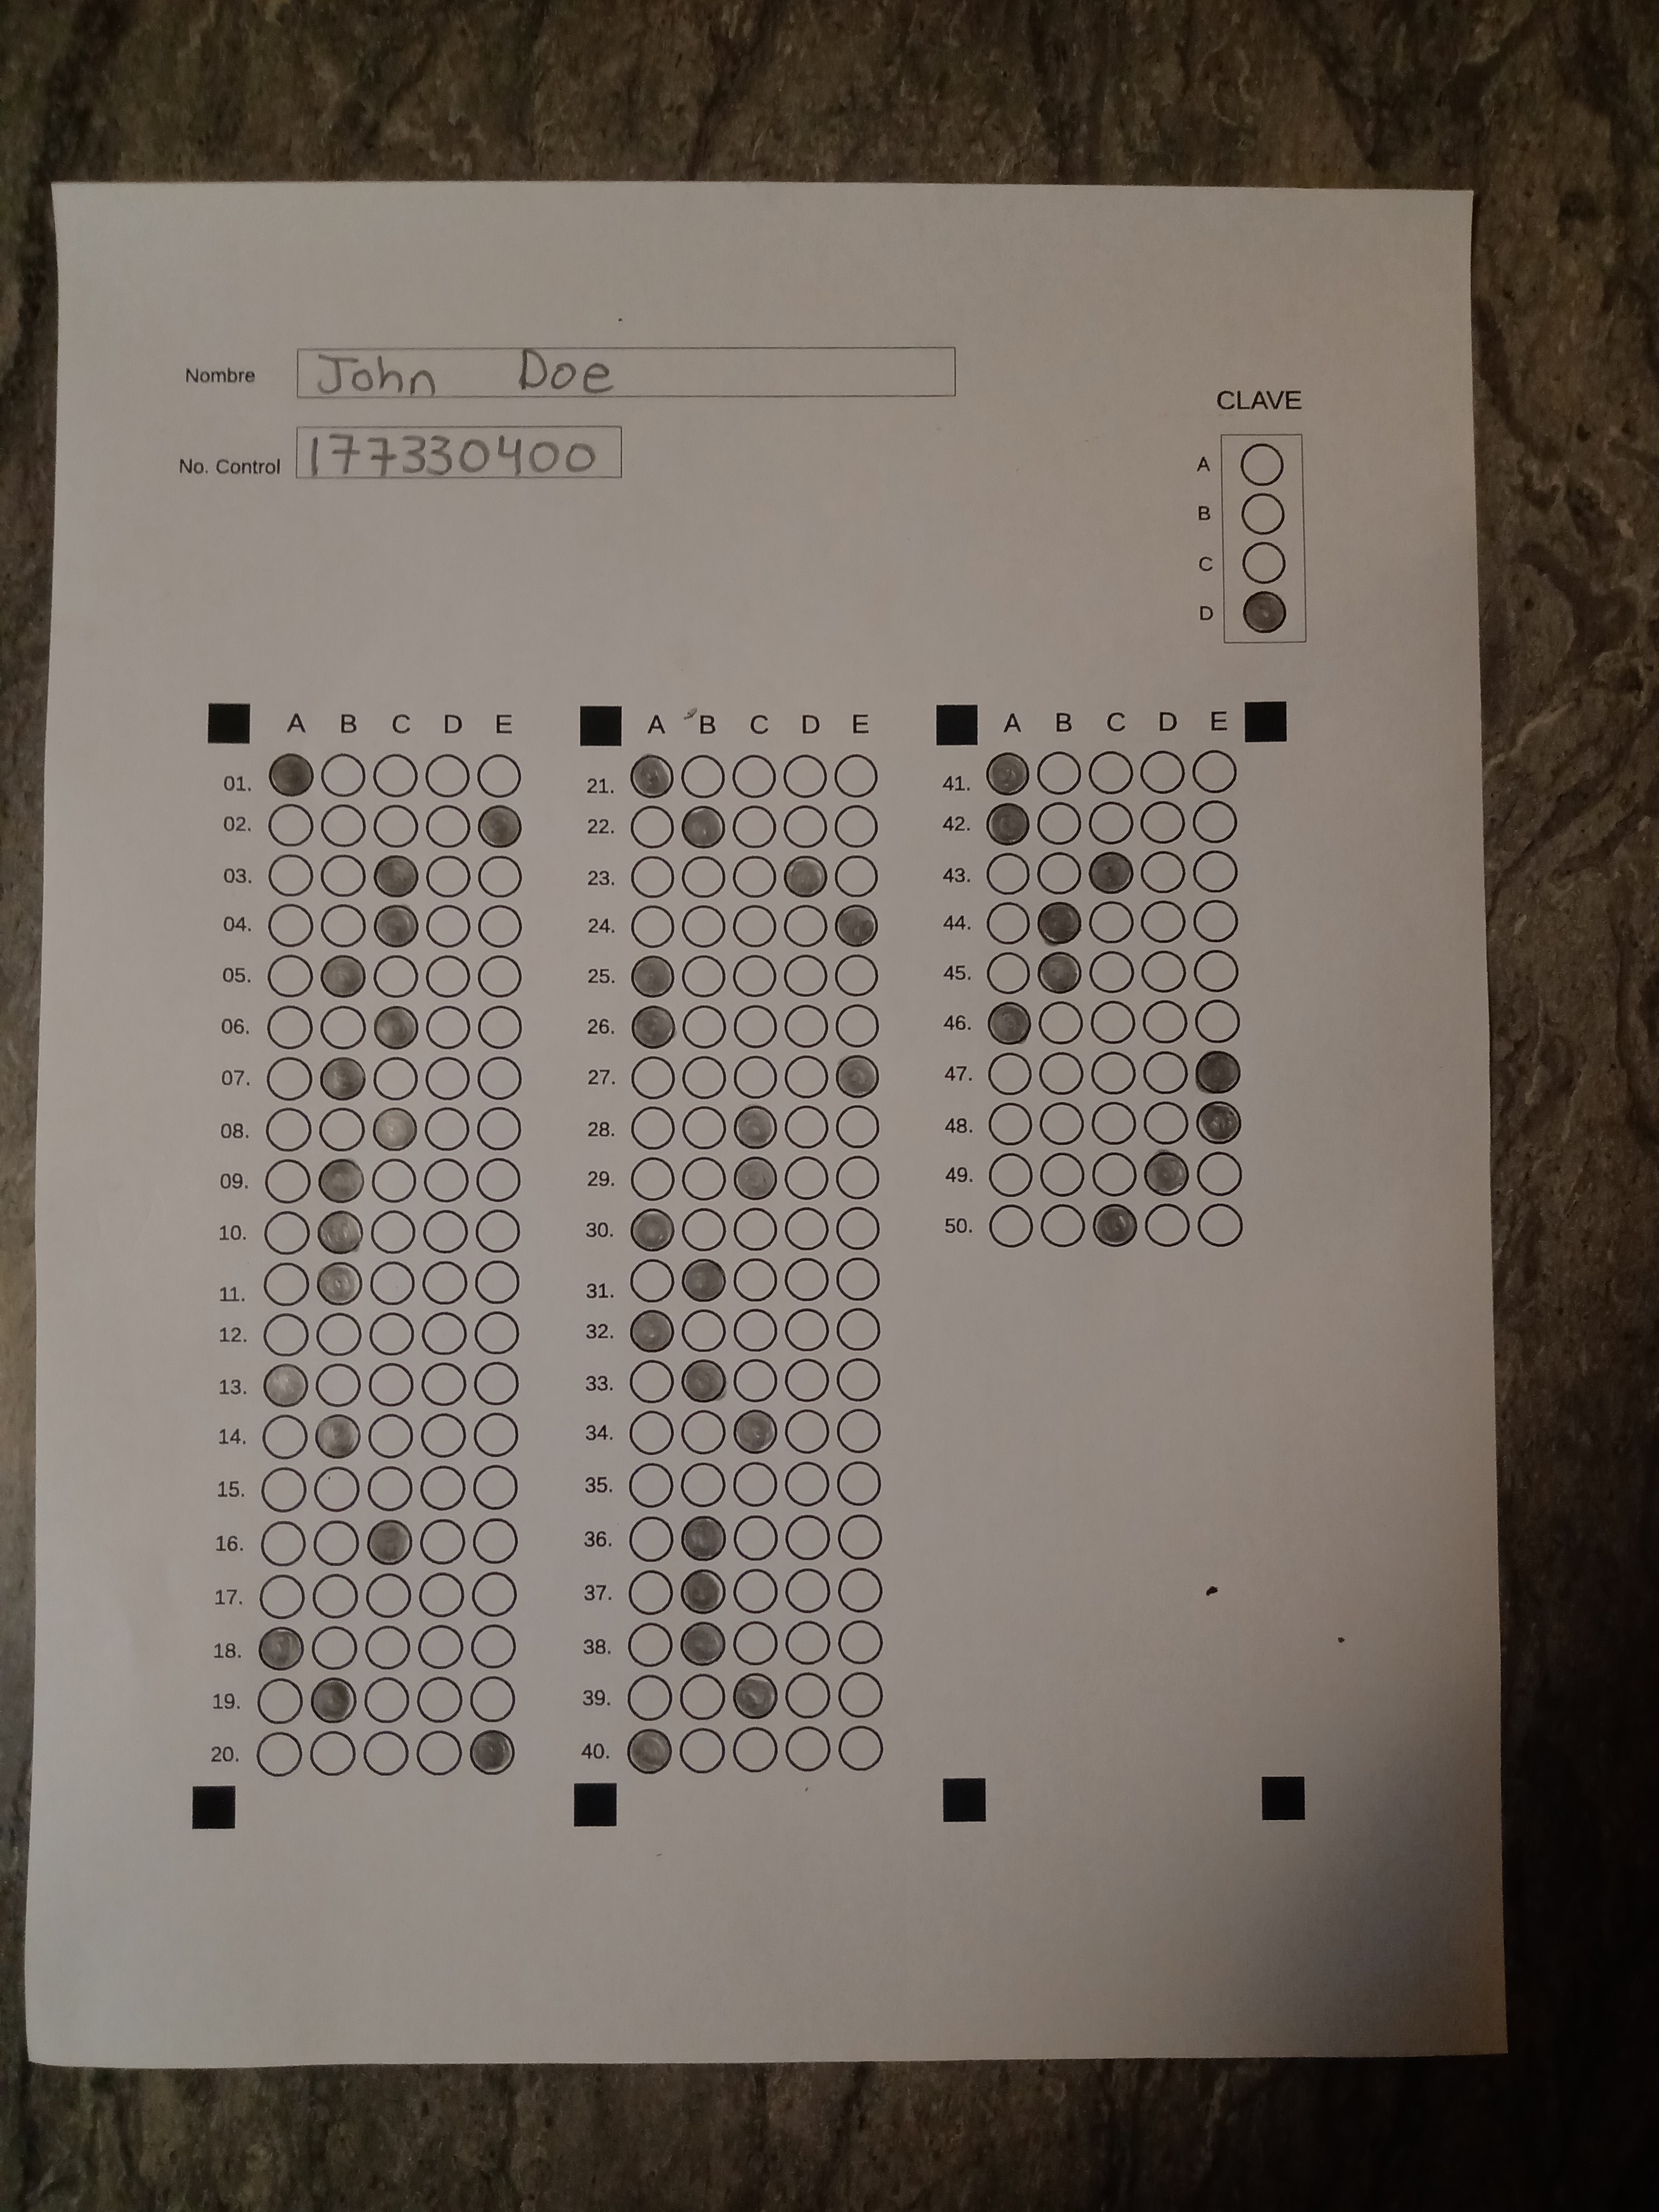 Nombre John Doe
No. Control 177330400
CLAVE
A
B
C
D
A B C D E
01.
02.
03.
04.
05.
06.
07.
08.
09.
10.
11.
12.
13.
14.
15.
16.
17.
18.
19.
20.
A B C D E
21.
22.
23.
24.
25.
26.
27.
28.
29.
30.
31.
32.
33.
34.
35.
36.
37.
38.
39.
40.
A B C D E
41.
42.
43.
44.
45.
46.
47.
48.
49.
50.